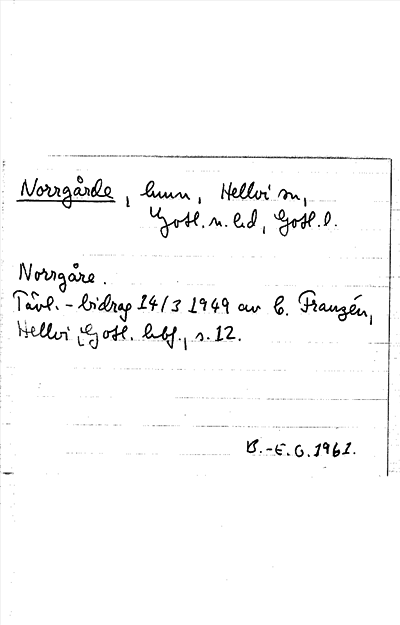 Norrgårde, hmn, Hellvi sn,
Gotl. n. hd, Gotl. l.
Norrgåre.
Tävl.-bidrag 14/3 1949 av C. Franzén,
Hellvi, Gotl. hbf., s. 12.
B.-E. O. 1961.